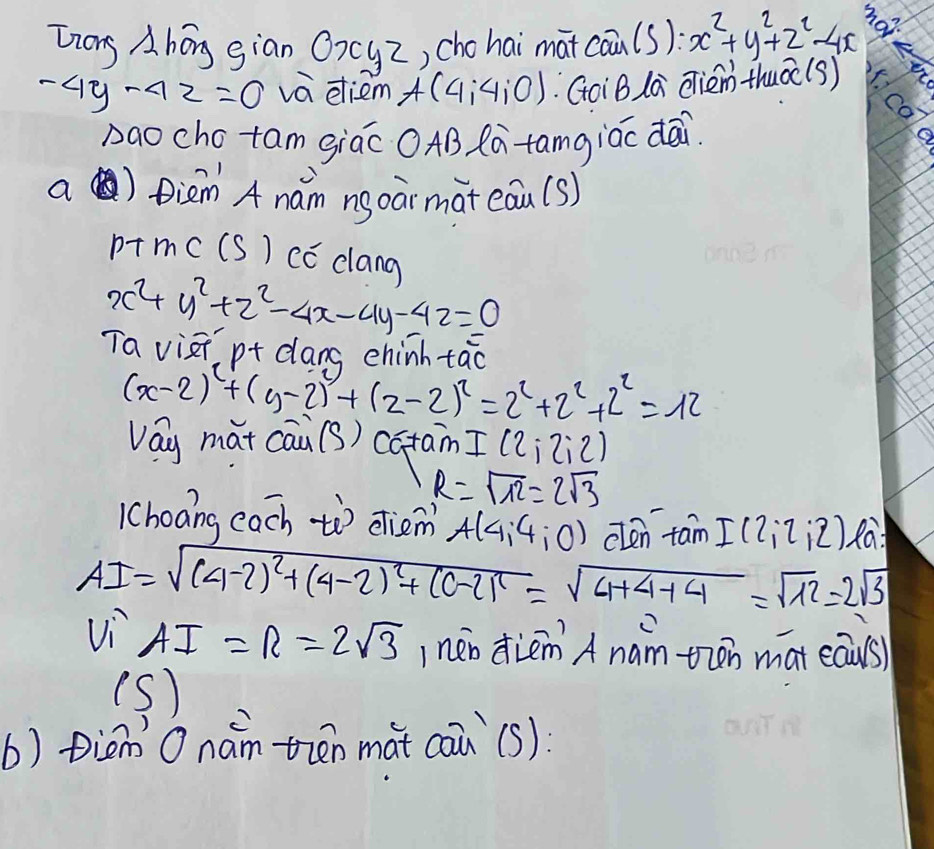 Trong không gian Oxyz, cho hai mặt cầu (S): x²+y²+z²-4x
-4y-4z=0 và điểm A(4;4;0). Gọi B là điểm thuộc (S)
sao cho tam giác OAB là tam giác đải.
a) Điểm A nằm ngoài mặt cầu (S)
ptmc (S) có dạng
x²+y²+z²-4x-4y-4z=0
Ta viết pt dạng chính tắc
(x-2)²+(y-2)²+(z-2)²=2²+2²+2²=12
Vậy mặt cầu (S) có tâm I (2;2;2)
R=√12=2√3
Khoảng cách từ điểm A(4;4;0) đến tâm I(2;2;2) là:
AI=√((4-2)²+(4-2)²+(0-2)²) = √(4+4+4) =√12=2√3
Vì AI = R = 2√3, nên điểm A nằm trên mặt cầu(S)
(S)
b) Điểm O nằm trên mặt cầu (S):